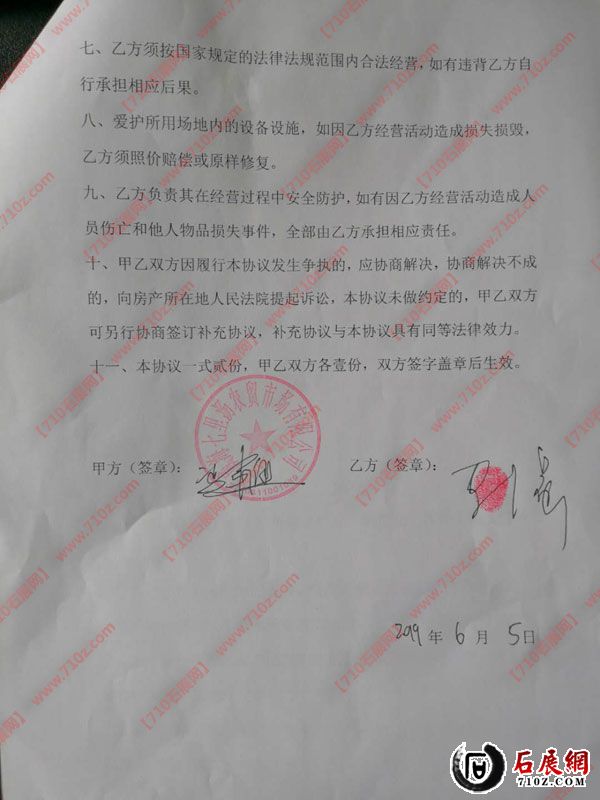 七、乙方须按国家规定的法律法规范围内合法经营，如有违背乙方自
行承担相应后果。
八、爱护所用场地内的设备设施，如因乙方经营活动造成损失损毁，
乙方须照价赔偿或原样修复。
九、乙方负责其在经营过程中安全防护，如有因乙方经营活动造成人
员伤亡和他人物品损失事件，全部由乙方承担相应责任。
十、甲乙双方因履行本协议发生争执的，应协商解决，协商解决不成
的，向房产所在地人民法院提起诉讼，本协议未做约定的，甲乙双方
可另行协商签订补充协议，补充协议与本协议具有同等法律效力。
十一、本协议一式贰份，甲乙双方各壹份，双方签字盖章后生效。
七里海农贸市场有限公司
甲方（签章）：
乙方（签章）：
2019 年 6 月 5 日
【710石展网】www.710z.com
石展網
www.710z.com